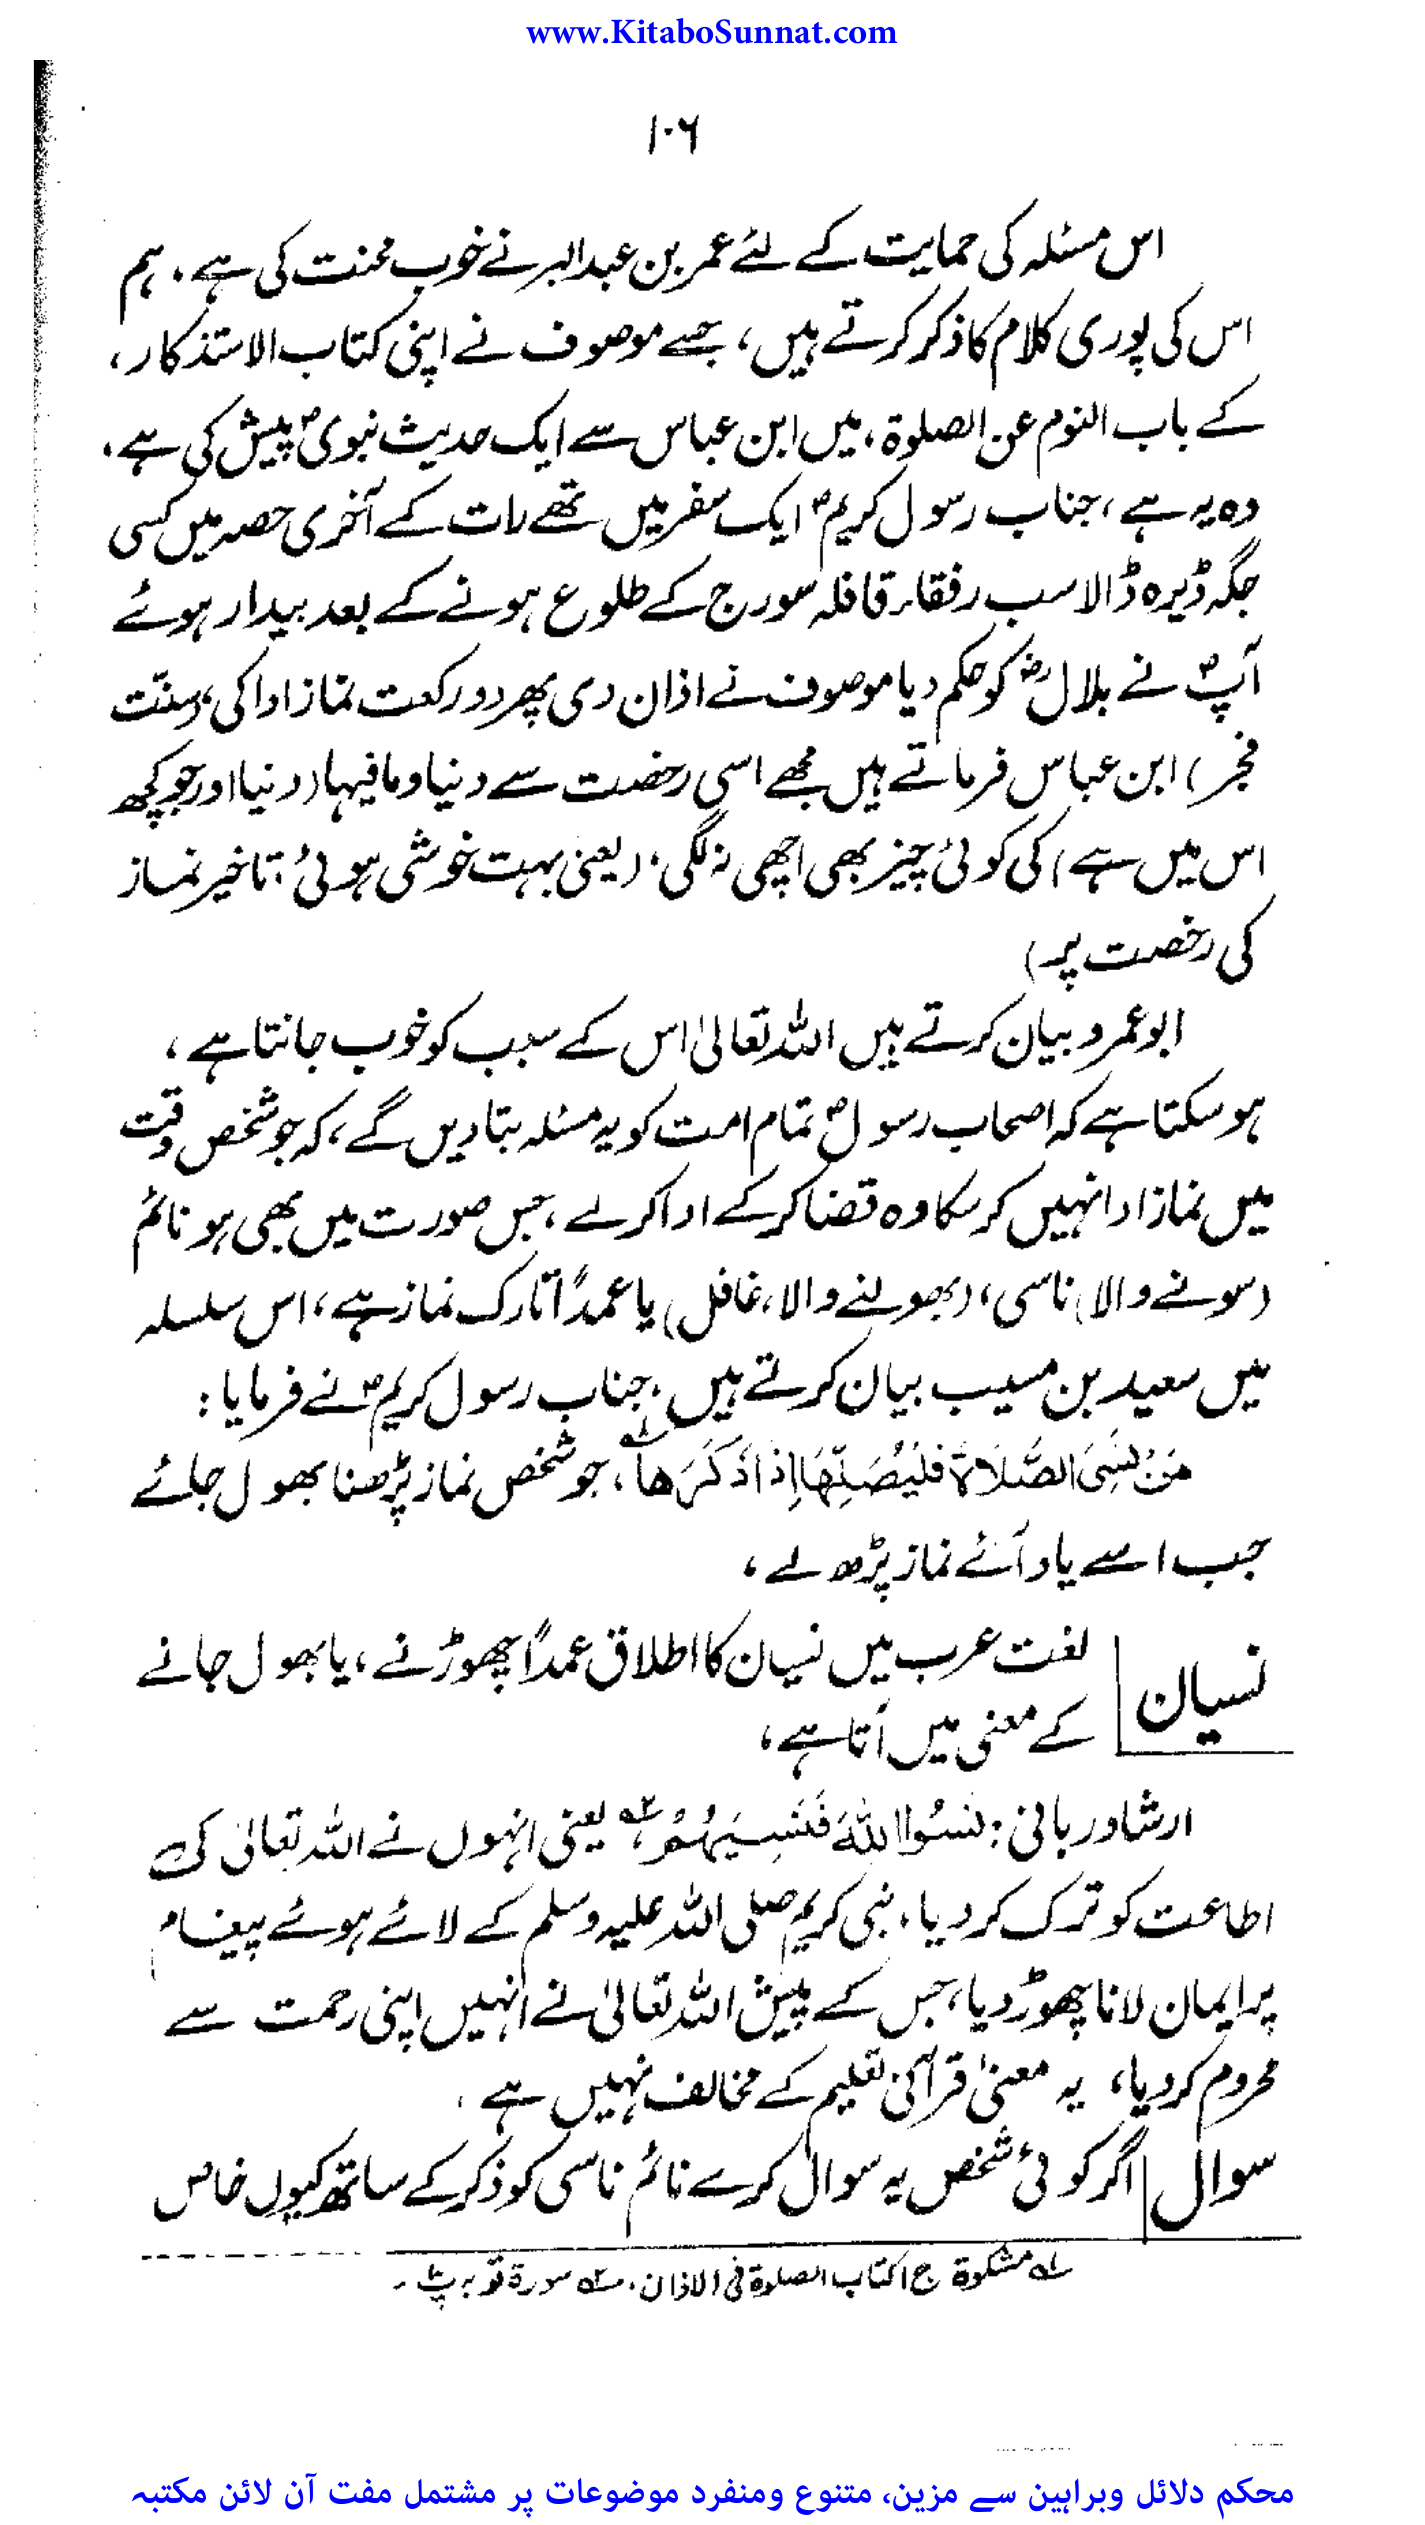 www.KitaboSunnat.com
۱۰۶
اس مسئلہ کی حمایت کے لئے عمر بن عبدالبر نے خوب محنت کی ہے، ہم
اس کی پوری کلام کا ذکر کرتے ہیں، جسے موصوف نے اپنی کتاب الاستذکار،
کے باب النوم عن الصلوۃ، میں ابن عباس سے ایک حدیث نبویؐ پیش کی ہے،
وہ یہ ہے، جناب رسول کریمؐ ایک سفر میں تھے رات کے آخری حصہ میں کسی
جگہ ڈیرہ ڈالا سب رفقاء قافلہ سورج کے طلوع ہونے کے بعد بیدار ہوئے
آپؐ نے بلالؓ کو حکم دیا موصوف نے اذان دی پھر دو رکعت نماز ادا کی، (سنّت
فجر) ابن عباس فرماتے ہیں مجھے اسی رخصت سے دنیا و ما فیہا (دنیا اور جو کچھ
اس میں ہے) کی کوئی چیز بھی اچھی نہ لگی، (یعنی بہت خوشی ہوئی، تاخیر نماز
کی رخصت پر)
ابو عمرو بیان کرتے ہیں اللہ تعالیٰ اس کے سبب کو خوب جانتا ہے،
ہو سکتا ہے کہ اصحاب رسولؐ تمام امت کو یہ مسئلہ بتا دیں گے، کہ جو شخص وقت
میں نماز ادا نہیں کر سکا وہ قضا کر کے ادا کر لے، جس صورت میں بھی ہو نائم
(سونے والا) ناسی، (بھولنے والا، غافل) یا عمداً تارک نماز ہے، اس سلسلہ
میں سعید بن مسیب بیان کرتے ہیں، جناب رسول کریمؐ نے فرمایا:
مَنْ نَسِیَ الصَّلَاۃَ فَلْیُصَلِّھَا اِذَا ذَکَرَھَا ؎۱، جو شخص نماز پڑھنا بھول جائے
جب اسے یاد آئے نماز پڑھ لے،
نسیان لغت عرب میں نسیان کا اطلاق عمداً چھوڑنے، یا بھول جانے
کے معنی میں آتا ہے،
ارشاد ربانی: نَسُوا اللہَ فَنَسِیَہُمْ، ؎۲ یعنی انہوں نے اللہ تعالیٰ کی
اطاعت کو ترک کر دیا، نبی کریم صلی اللہ علیہ وسلم کے لائے ہوئے پیغام
پر ایمان لانا چھوڑ دیا، جس کے پیش اللہ تعالیٰ نے انہیں اپنی رحمت سے
محروم کر دیا، یہ معنیٰ قرآنی تعلیم کے مخالف نہیں ہے،
سوال اگر کوئی شخص یہ سوال کرے نائم ناسی کو ذکر کے ساتھ کیوں خاص
؎۱ مشکوۃ ج ۱ کتاب الصلوۃ فی الاذان، ؎۲ سورۃ توبہ
محکم دلائل وبراہین سے مزین، متنوع ومنفرد موضوعات پر مشتمل مفت آن لائن مکتبہ